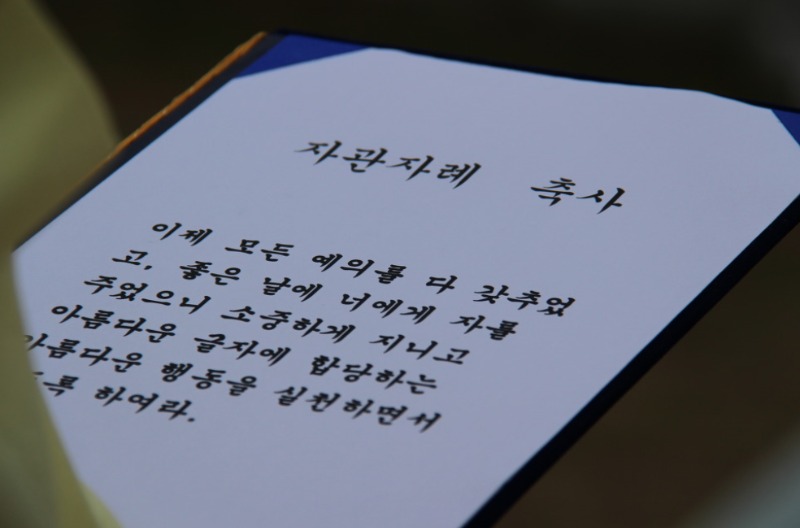 자관자례 축사
이제 모든 예의를 다 갖추었
고, 좋은 날에 너에게 자를
주었으니 소중하게 지니고
아름다운 글자에 합당하는
아름다운 행동을 실천하면서
하여라.